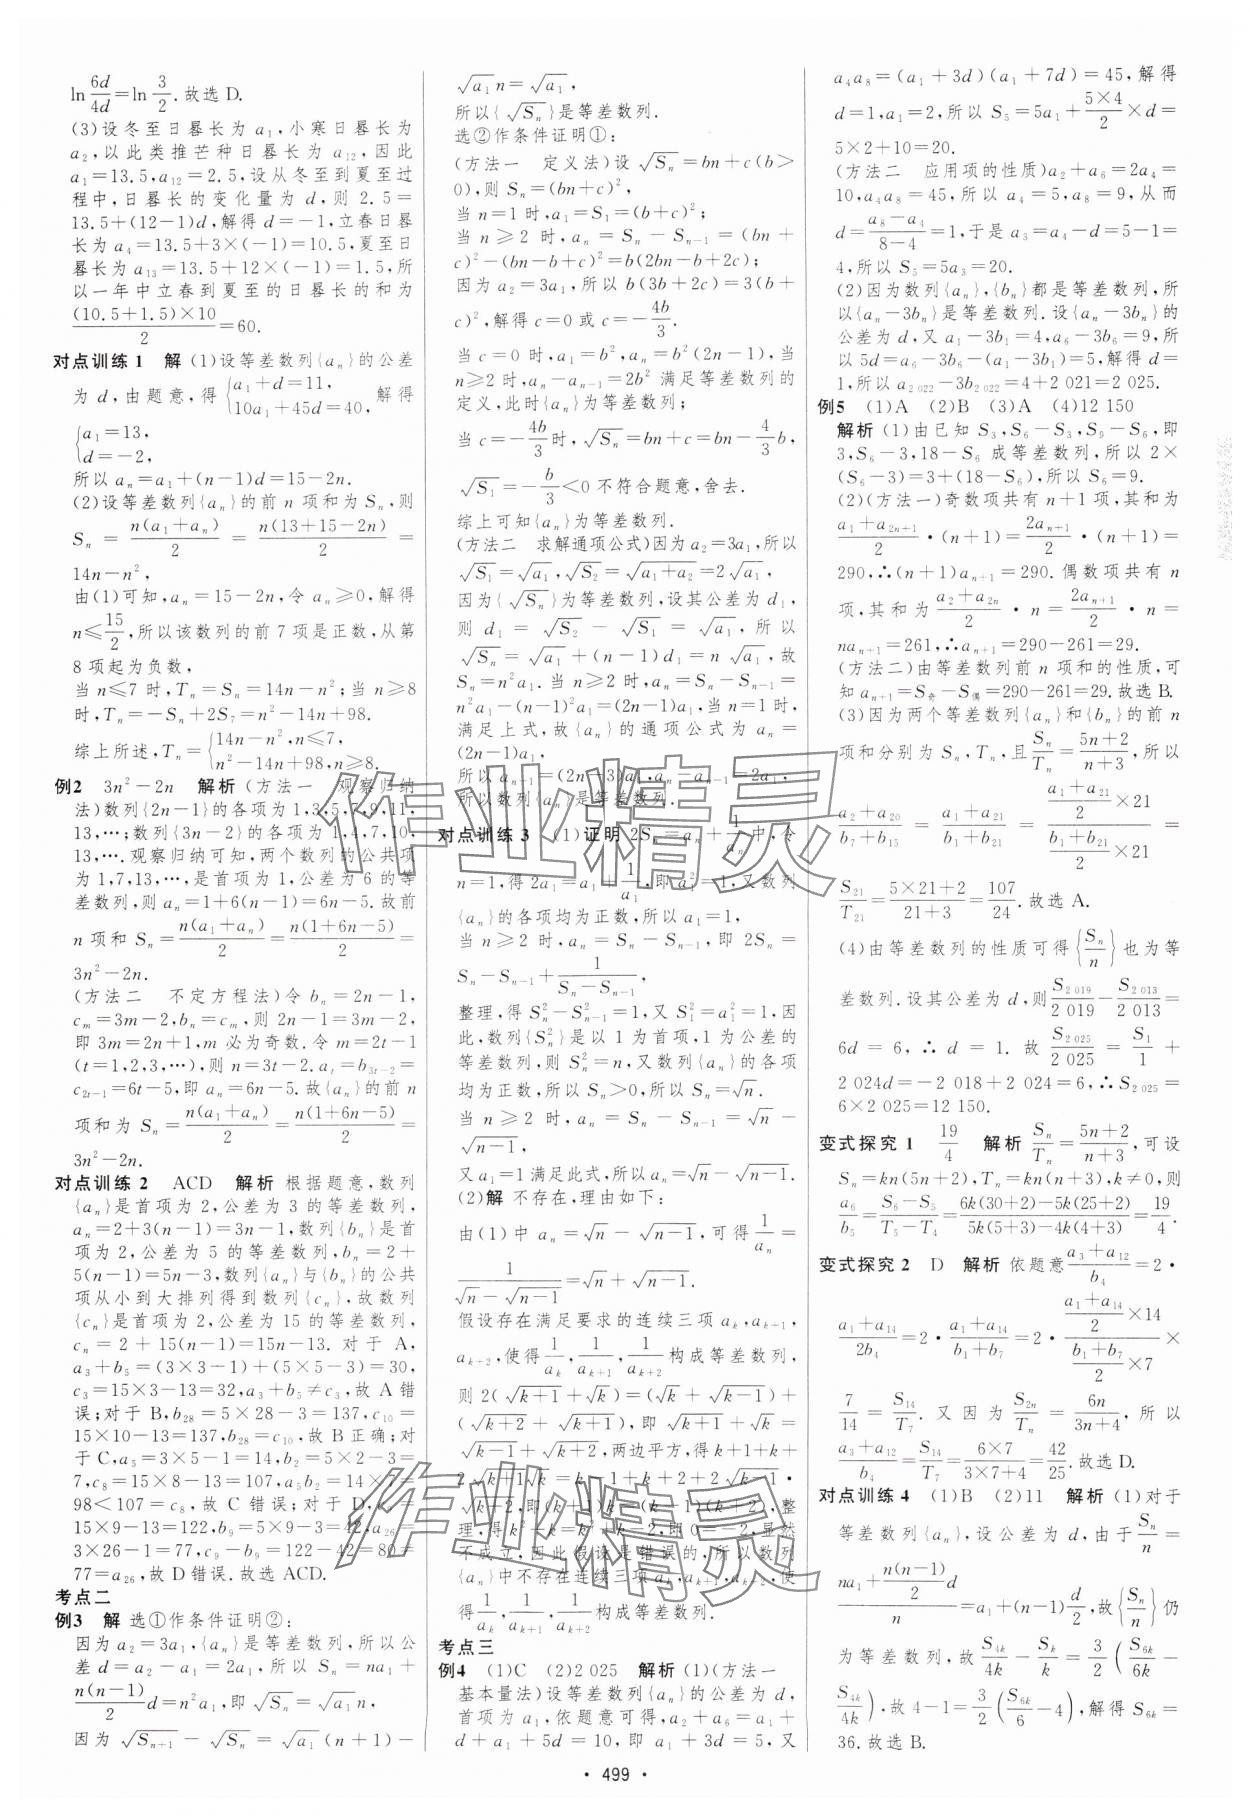 ln 6d/4d=ln 3/2.故选D.
(3)设冬至日晷长为a₁,小寒日晷长为
a₂,以此类推芒种日晷长为a₁₂,因此
a₁=13.5,a₁₂=2.5,设从冬至到夏至过
程中,日晷长的变化量为d,则2.5=
13.5+(12-1)d,解得d=-1,立春日晷
长为a₄=13.5+3×(-1)=10.5,夏至日
晷长为a₁₃=13.5+12×(-1)=1.5,所
以一年中立春到夏至的日晷长的和为
(10.5+1.5)×10/2=60.
对点训练1 解 (1)设等差数列{aₙ}的公差
为d,由题意,得{a₁+d=11, 10a₁+45d=40, 解得
{a₁=13, d=-2,
所以aₙ=a₁+(n-1)d=15-2n.
(2)设等差数列{aₙ}的前n项和为Sₙ,则
Sₙ=n(a₁+aₙ)/2=n(13+15-2n)/2=
14n-n²,
由(1)可知,aₙ=15-2n,令aₙ≥0,解得
n≤15/2,所以该数列的前7项是正数,从第
8项起为负数,
当n≤7时,Tₙ=Sₙ=14n-n²;当n≥8
时,Tₙ=-Sₙ+2S₇=n²-14n+98.
综上所述,Tₙ={14n-n²,n≤7, n²-14n+98,n≥8.
例2 3n²-2n 解析 (方法一 观察归纳
法)数列{2n-1}的各项为1,3,5,7,9,11,
13,…;数列{3n-2}的各项为1,4,7,10,
13,….观察归纳可知,两个数列的公共项
为1,7,13,…,是首项为1,公差为6的等
差数列,则aₙ=1+6(n-1)=6n-5.故前
n项和Sₙ=n(a₁+aₙ)/2=n(1+6n-5)/2=
3n²-2n.
(方法二 不定方程法)令bₙ=2n-1,
cₘ=3m-2,bₙ=cₘ,则2n-1=3m-2,
即3m=2n+1,m必为奇数.令m=2t-1
(t=1,2,3,…),则n=3t-2.aₜ=b₃ₜ₋₂=
c₂ₜ₋₁=6t-5,即aₙ=6n-5.故{aₙ}的前n
项和为Sₙ=n(a₁+aₙ)/2=n(1+6n-5)/2=
3n²-2n.
对点训练2 ACD 解析 根据题意,数列
{aₙ}是首项为2,公差为3的等差数列,
aₙ=2+3(n-1)=3n-1,数列{bₙ}是首
项为2,公差为5的等差数列,bₙ=2+
5(n-1)=5n-3,数列{aₙ}与{bₙ}的公共
项从小到大排列得到数列{cₙ},故数列
{cₙ}是首项为2,公差为15的等差数列,
cₙ=2+15(n-1)=15n-13.对于A,
a₃+b₅=(3×3-1)+(5×5-3)=30,
c₃=15×3-13=32,a₃+b₅≠c₃,故A错
误;对于B,b₂₈=5×28-3=137,c₁₀=
15×10-13=137,b₂₈=c₁₀,故B正确;对
于C,a₅=3×5-1=14,b₂=5×2-3=
7,c₈=15×8-13=107,a₅b₂=14×7=
98<107=c₈,故C错误;对于D,c₉=
15×9-13=122,b₉=5×9-3=42,a₂₆=
3×26-1=77,c₉-b₉=122-42=80≠
77=a₂₆,故D错误.故选ACD.
考点二
例3 解 选①作条件证明②:
因为a₂=3a₁,{aₙ}是等差数列,所以公
差d=a₂-a₁=2a₁,所以Sₙ=na₁+
n(n-1)/2 d=n²a₁,即√Sₙ=√a₁ n,
因为√Sₙ₊₁-√Sₙ=√a₁(n+1)-
√a₁ n=√a₁,
所以{√Sₙ}是等差数列.
选②作条件证明①:
(方法一 定义法)设√Sₙ=bn+c(b>
0),则Sₙ=(bn+c)²,
当n=1时,a₁=S₁=(b+c)²;
当n≥2时,aₙ=Sₙ-Sₙ₋₁=(bn+
c)²-(bn-b+c)²=b(2bn-b+2c);
因为a₂=3a₁,所以b(3b+2c)=3(b+
c)²,解得c=0或c=-4b/3.
当c=0时,a₁=b²,aₙ=b²(2n-1),当
n≥2时,aₙ-aₙ₋₁=2b²满足等差数列的
定义,此时{aₙ}为等差数列;
当c=-4b/3时,√Sₙ=bn+c=bn-4/3 b,
√S₁=-b/3<0不符合题意,舍去.
综上可知{aₙ}为等差数列.
(方法二 求解通项公式)因为a₂=3a₁,所以
√S₁=√a₁,√S₂=√(a₁+a₂)=2√a₁.
因为{√Sₙ}为等差数列,设其公差为d₁,
则d₁=√S₂-√S₁=√a₁,所以
√Sₙ=√a₁+(n-1)d₁=n√a₁,故
Sₙ=n²a₁.当n≥2时,aₙ=Sₙ-Sₙ₋₁=
n²a₁-(n-1)²a₁=(2n-1)a₁,当n=1时,
满足上式,故{aₙ}的通项公式为aₙ=
(2n-1)a₁,
所以aₙ₋₁=(2n-3)a₁,aₙ-aₙ₋₁=2a₁,
所以数列{aₙ}是等差数列.
对点训练3 (1)证明 2Sₙ=aₙ+1/aₙ中,令
n=1,得2a₁=a₁+1/a₁,即a₁²=1,又数列
{aₙ}的各项均为正数,所以a₁=1,
当n≥2时,aₙ=Sₙ-Sₙ₋₁,即2Sₙ=
Sₙ-Sₙ₋₁+1/(Sₙ-Sₙ₋₁),
整理,得Sₙ²-Sₙ₋₁²=1,又S₁²=a₁²=1,因
此,数列{Sₙ²}是以1为首项,1为公差的
等差数列,则Sₙ²=n,又数列{aₙ}的各项
均为正数,所以Sₙ>0,所以Sₙ=√n.
当n≥2时,aₙ=Sₙ-Sₙ₋₁=√n-
√(n-1),
又a₁=1满足此式,所以aₙ=√n-√(n-1).
(2)解 不存在,理由如下:
由(1)中aₙ=√n-√(n-1),可得1/aₙ=
1/(√n-√(n-1))=√n+√(n-1).
假设存在满足要求的连续三项aₖ,aₖ₊₁,
aₖ₊₂,使得1/aₖ,1/aₖ₊₁,1/aₖ₊₂构成等差数列,
则2(√(k+1)+√k)=(√k+√(k-1))+
(√(k+2)+√(k+1)),即√(k+1)+√k=
√(k-1)+√(k+2),两边平方,得k+1+k+
2√(k+1)√k=k-1+k+2+2√(k-1)·
√(k+2),即(k+1)k=(k-1)(k+2),整
理,得k²+k=k²+k-2,即0=-2,显然
不成立,因此假设是错误的,所以数列
{aₙ}中不存在连续三项aₖ,aₖ₊₁,aₖ₊₂,使
得1/aₖ,1/aₖ₊₁,1/aₖ₊₂构成等差数列.
考点三
例4 (1)C (2)2 025 解析 (1)(方法一
基本量法)设等差数列{aₙ}的公差为d,
首项为a₁,依题意可得,a₂+a₆=a₁+
d+a₁+5d=10,即a₁+3d=5,又
a₄a₈=(a₁+3d)(a₁+7d)=45,解得
d=1,a₁=2,所以S₅=5a₁+5×4/2×d=
5×2+10=20.
(方法二 应用项的性质)a₂+a₆=2a₄=
10,a₄a₈=45,所以a₄=5,a₈=9,从而
d=(a₈-a₄)/(8-4)=1,于是a₃=a₄-d=5-1=
4,所以S₅=5a₃=20.
(2)因为数列{aₙ},{bₙ}都是等差数列,所
以{aₙ-3bₙ}是等差数列.设{aₙ-3bₙ}的
公差为d,又a₁-3b₁=4,a₆-3b₆=9,所
以5d=a₆-3b₆-(a₁-3b₁)=5,解得d=
1,所以a₂ ₀₂₂-3b₂ ₀₂₂=4+2 021=2 025.
例5 (1)A (2)B (3)A (4)12 150
解析 (1)由已知S₃,S₆-S₃,S₉-S₆,即
3,S₆-3,18-S₆成等差数列,所以2×
(S₆-3)=3+(18-S₆),所以S₆=9.
(2)(方法一)奇数项共有n+1项,其和为
(a₁+a₂ₙ₊₁)/2·(n+1)=2aₙ₊₁/2·(n+1)=
290,∴(n+1)aₙ₊₁=290.偶数项共有n
项,其和为(a₂+a₂ₙ)/2·n=2aₙ₊₁/2·n=
naₙ₊₁=261,∴aₙ₊₁=290-261=29.
(方法二)由等差数列前n项和的性质,可
知aₙ₊₁=S奇-S偶=290-261=29.故选B.
(3)因为两个等差数列{aₙ}和{bₙ}的前n
项和分别为Sₙ,Tₙ,且Sₙ/Tₙ=(5n+2)/(n+3),所以
(a₂+a₂₀)/(b₁+b₁₅)=(a₁+a₂₁)/(b₁+b₂₁)=((a₁+a₂₁)/2×21)/((b₁+b₂₁)/2×21)=
S₂₁/T₂₁=(5×21+2)/(21+3)=107/24.故选A.
(4)由等差数列的性质可得{Sₙ/n}也为等
差数列.设其公差为d,则S₂ ₀₁₉/2 019-S₂ ₀₁₃/2 013=
6d=6,∴d=1.故S₂ ₀₂₅/2 025=S₁/1+
2 024d=-2 018+2 024=6,∴S₂ ₀₂₅=
6×2 025=12 150.
变式探究1 19/4 解析 Sₙ/Tₙ=(5n+2)/(n+3),可设
Sₙ=kn(5n+2),Tₙ=kn(n+3),k≠0,则
a₆/b₅=(S₆-S₅)/(T₅-T₄)=(6k(30+2)-5k(25+2))/(5k(5+3)-4k(4+3))=19/4.
变式探究2 D 解析 依题意(a₃+a₁₂)/b₄=2·
(a₁+a₁₄)/2b₄=2·(a₁+a₁₄)/(b₁+b₇)=2·((a₁+a₁₄)/2×14)/((b₁+b₇)/2×7)×
7/14=S₁₄/T₇.又因为S₂ₙ/Tₙ=6n/(3n+4),所以
(a₃+a₁₂)/b₄=S₁₄/T₇=(6×7)/(3×7+4)=42/25.故选D.
对点训练4 (1)B (2)11 解析 (1)对于
等差数列{aₙ},设公差为d,由于Sₙ/n=
(na₁+n(n-1)/2 d)/n=a₁+(n-1)d/2,故{Sₙ/n}仍
为等差数列,故S₄ₖ/4k-Sₖ/k=3/2(S₆ₖ/6k-
S₄ₖ/4k).故4-1=3/2(S₆ₖ/6-4),解得S₆ₖ=
36.故选B.
· 499 ·
作业精灵
作业精灵